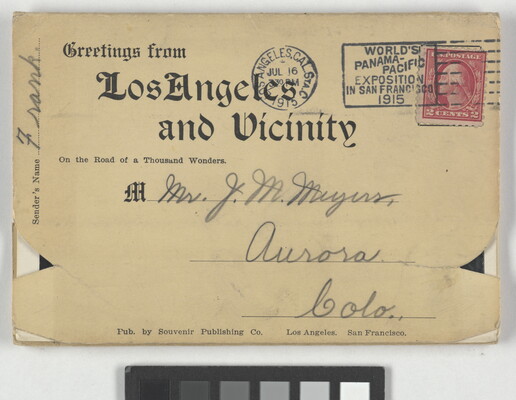 Greetings from
Los Angeles
and Vicinity
On the Road of a Thousand Wonders.
Sender's Name Frank
LOS ANGELES, CAL.
JUL 16
1915
WORLD'S
PANAMA-
PACIFIC
EXPOSITION
IN SAN FRANCISCO
1915
POSTAGE
2 CENTS 2
M Mr. J. M. Meyers,
Aurora
Colo.,
Pub. by Souvenir Publishing Co. Los Angeles. San Francisco.